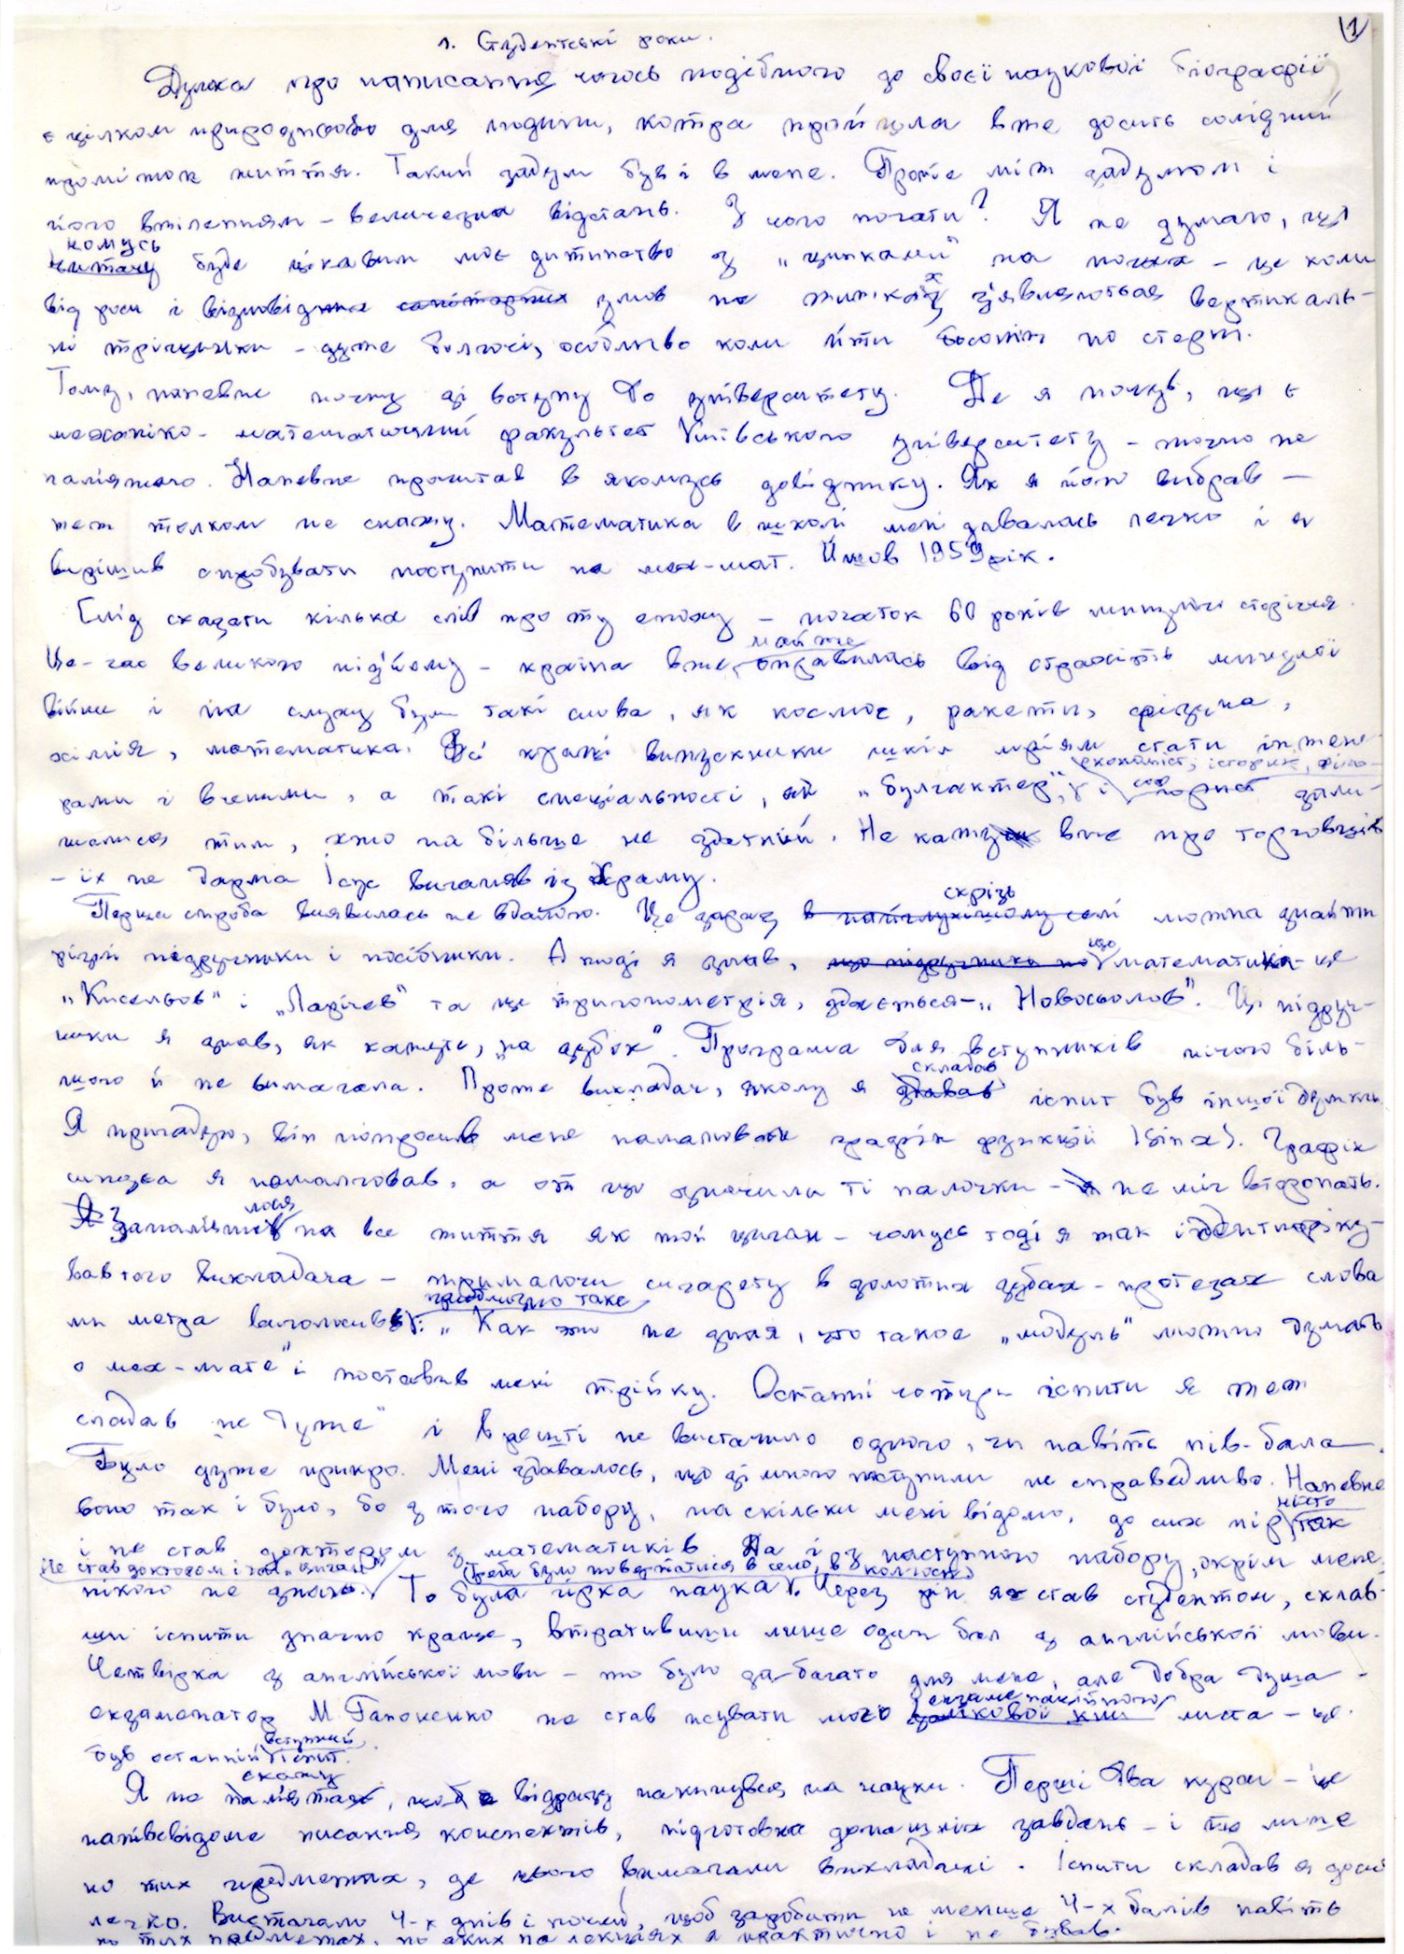 1
1. Студентські роки.
Думка про написання чогось подібного до своєї наукової біографії
є цілком природньою для людини, котра пройшла вже досить солідний
проміжок життя. Такий задум був і в мене. Проте між задумом і
його втіленням – величезна відстань. З чого почати? Я не думаю, що
комусь
читачу буде цікавим моє дитинство з „ципками" на ногах – це коли
від роси і відповідних санітарних умов на литках з'являються вертикаль-
ні тріщинки – дуже болючі, особливо коли йти босоніж по стерні.
Тому, напевне почну зі вступу до університету. Де я почув, що є
механіко-математичний факультет Київського університету – точно не
пам'ятаю. Напевне прочитав в якомусь довіднику. Як я його вибрав –
теж толком не скажу. Математика в школі мені давалась легко і я
вирішив спробувати поступити на мех-мат. Йшов 1959 рік.
Слід сказати кілька слів про ту епоху – початок 60 років минулого сторіччя.
майже
Це – час великого підйому – країна вже оправилась від страхіть минулої
війни і на слуху були такі слова, як космос, ракети, фізика,
хімія, математика. Всі кращі випускники шкіл мріяли стати інжене-
економіст, історик, філо-
рами і вченими, а такі спеціальності, як „бухгалтер", і юрист зали-
шались тим, хто на більше не здатний. Не кажу вже про торговців
– їх не дарма Ісус виганяв із Храму.
скрізь
Перша спроба виявилась не вдалою. Це зараз в найглухішому селі можна знайти
що
різні підручники і посібники. А тоді я знав, що підручники по математика – це
„Кисельов" і „Ларічев" та ще тригонометрія, здається – „Новосьолов". Ці підруч-
ники я знав, як кажуть, „на зубок". Програма для вступників нічого біль-
складав
шого й не вимагала. Проте викладач, якому я здавав іспит був іншої думки.
Я пригадую, він попросив мене намалювати графік функції |sin x|. Графік
sin x я намалював, а от що значили ті палочки – я не міг второпать.
лося
Я Запам'ятав на все життя як той циган – чомусь тоді я так ідентифіку-
вав того викладача – тримаючи сигарету в золотих зубах – протезах слова
приблизно таке
ми метра вимовив: „Как не зная, что такое „модуль" можно думать
о мех-мате" і поставив мені трійку. Останні чотири іспити я теж
складав „не дуже" і врешті не вистачило одного, чи навіть пів-бала.
Було дуже прикро. Мені здавалось, що зі мною поступили не справедливо. Напевне
воно так і було, бо з того набору, наскільки мені відомо, до сих пір так
ніхто
і не став доктором з математиків. Та і з наступного набору, окрім мене,
Не став доктором і той „циган" (Треба було повертатися в село, в колгосп)
нікого не знаю. То була гірка наука. Через рік я став студентом, склав-
ши іспити значно краще, втративши лише один бал з англійської мови.
Четвірка з англійської мови – то було забагато для мене, але добра душа –
екзаменаційного
екзаменатор М. Гапоненко не став псувати мого заліковой книж листа – це
вступний
був останній іспит.
скажу
Я не пам'ятаю, щоб я відразу накинувся на науки. Перші два курси – це
напівсвідоме писання конспектів, підготовка домашніх завдань – і то лише
по тих предметах, де цього вимагали викладачі. Іспити складав я досить
легко. Вистачало 4-х днів і ночей, щоб заробити не менше 4-х балів навіть
по тих предметах, по яких на лекціях я практично і не бував.